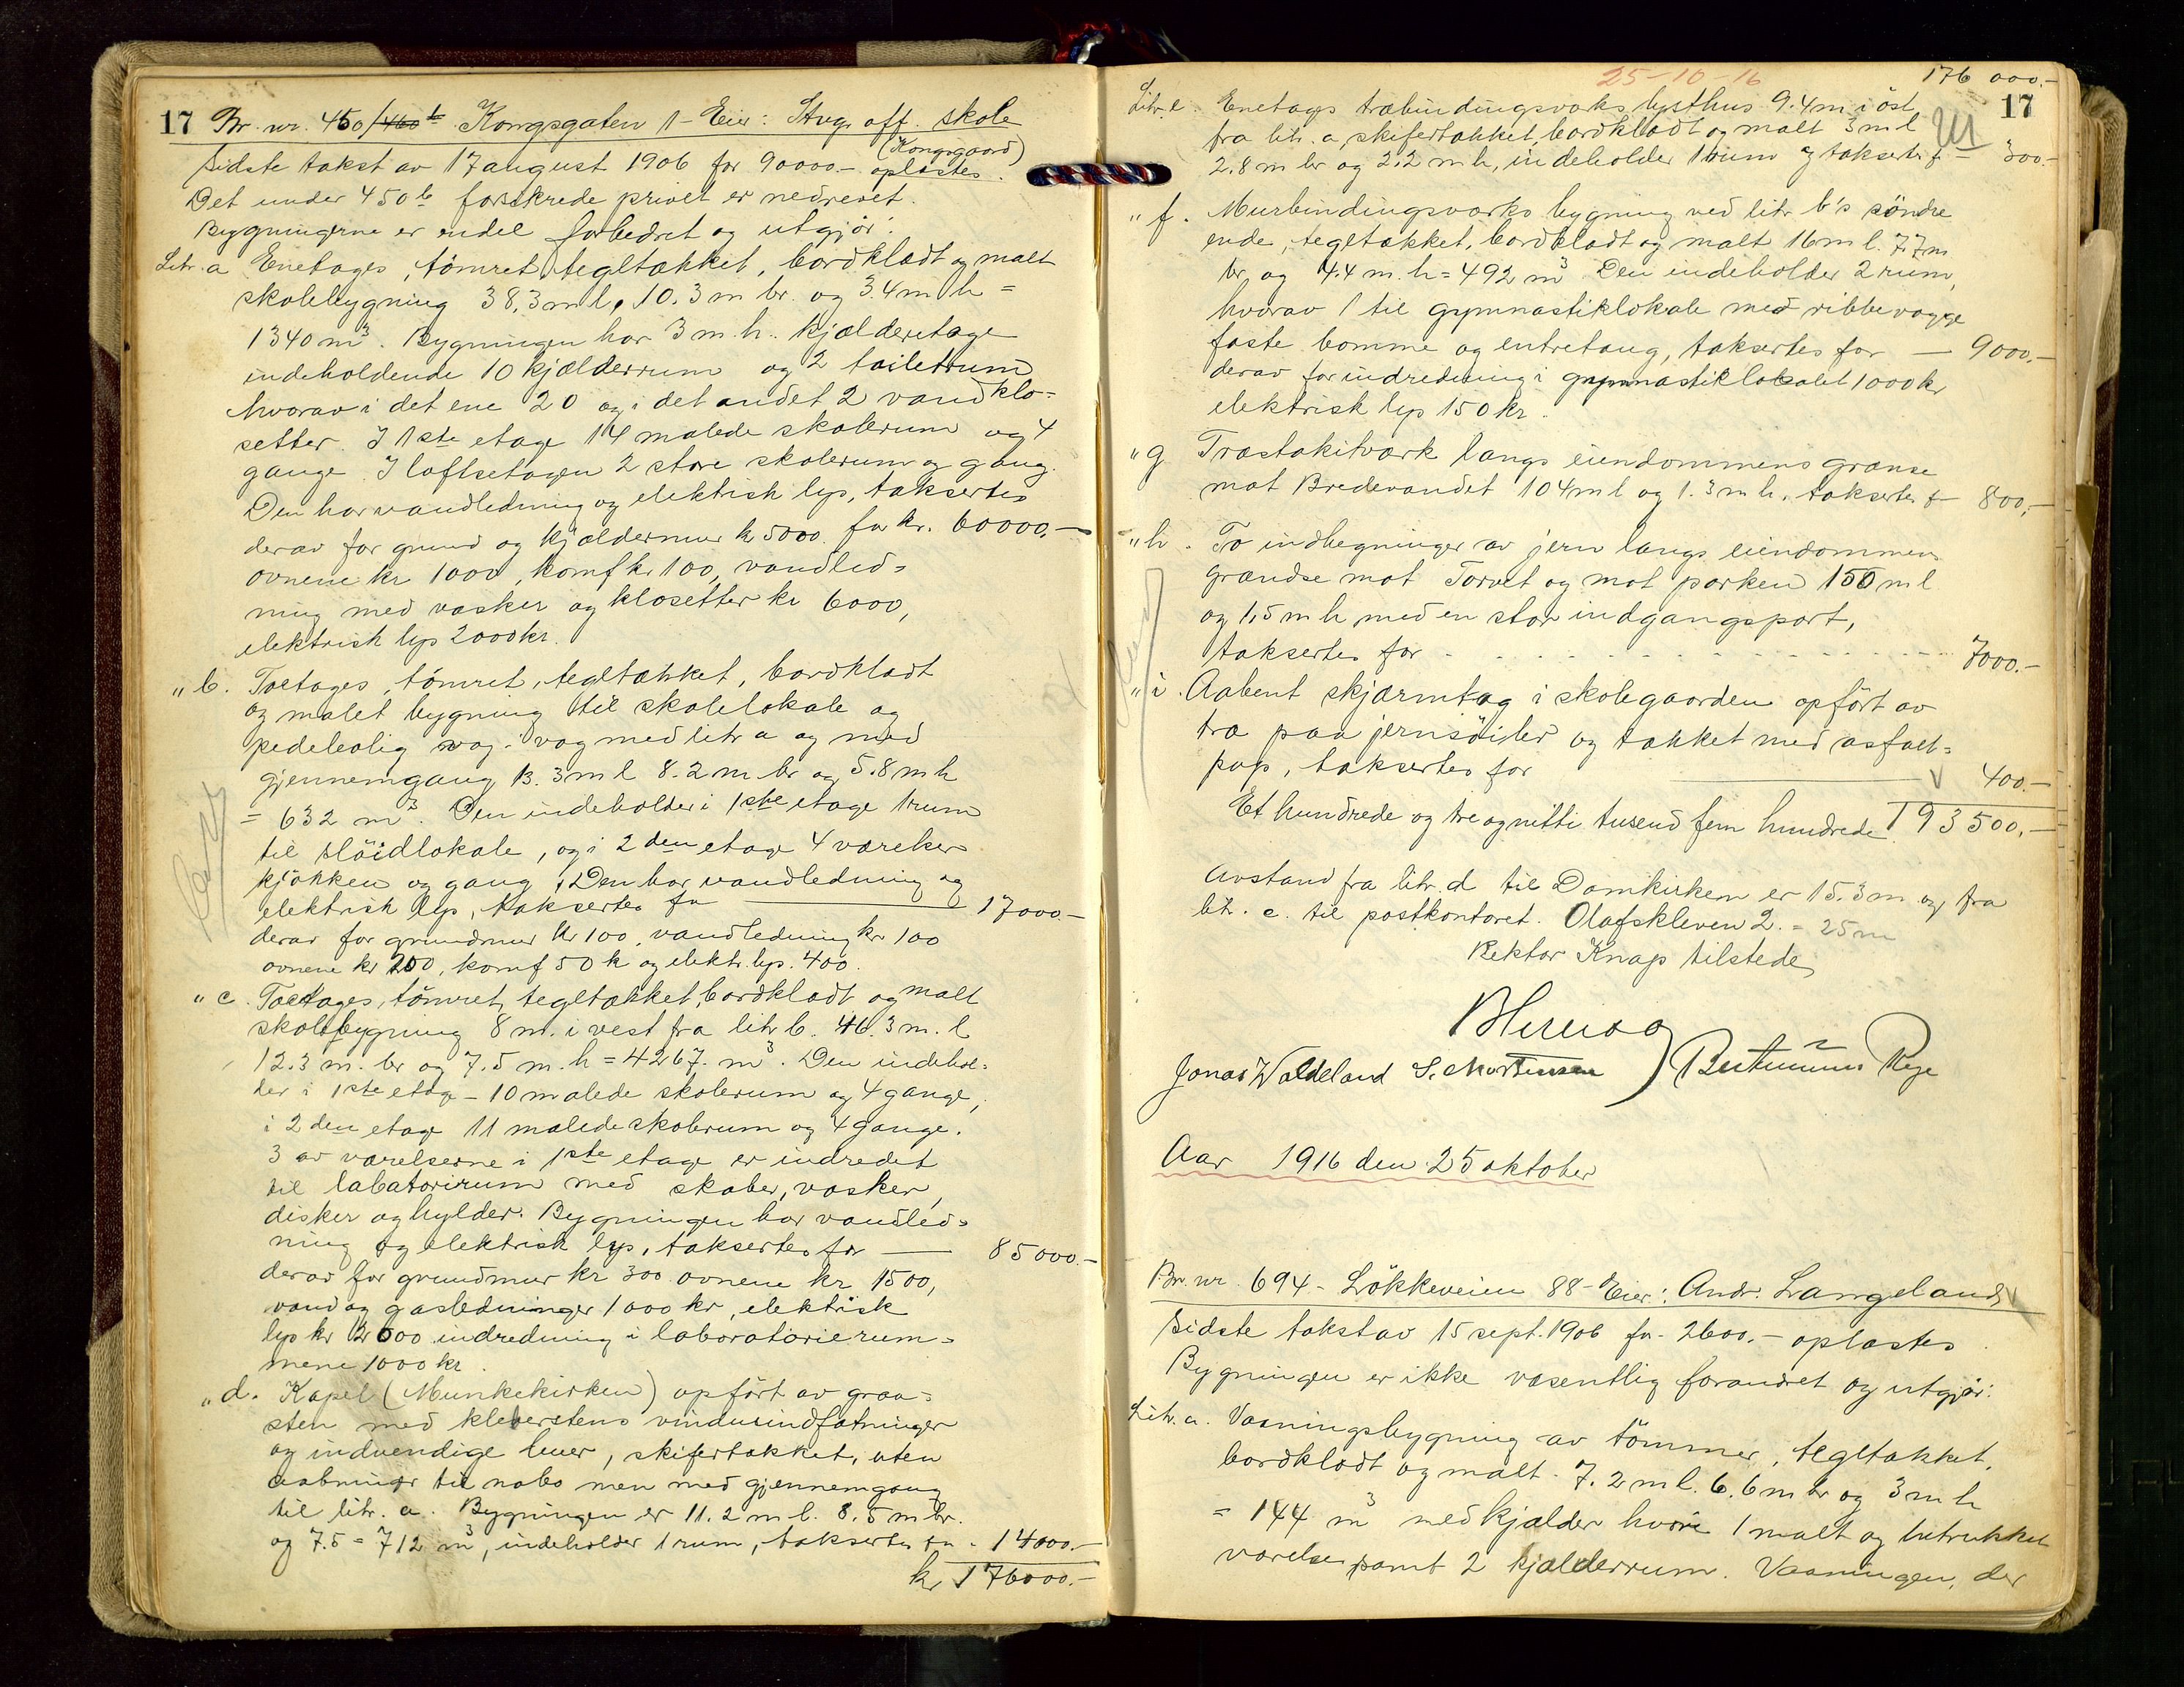 17 Br. nr. 450/460 b Kongsgaten 1 - Eier: Stvgr. off. skole
(Kongsgaard)
Sidste takst av 17 august 1906 for 90000.- oplæstes.
Det under 450 b forsikrede privet er nedrevet.
Bygningerne er endel forbedret og utgjør:
Litr. a Enetages, tømret, tegltækket, bordklædt og malt
skolebygning 38.3 m l, 10.3 m br. og 3.4 m h =
1340 m3. Bygningen har 3 m. h. kjælderetage
indeholdende 10 kjælderrum og 2 toiletrum
hvorav i det ene 20 og i det andet 2 vandklo=
setter. I 1ste etage 14 malede skolerum og 4
gange. I loftsetagen 2 store skolerum og gang.
Den har vandledning og elektrisk lys, taksertes
for kr. 60000.-
derav for grund og kjældermur k 5000
ovnene kr 1000, komf kr 100, vandled=
ning med vasker og klosetter kr 6000,
elektrisk lys 2000 kr.
" b. Toetages, tømret, tegltækket, bordklædt
og malet bygning til skolelokale og
pedelbolig væg i væg med litr a og med
gjennemgang, 13.3 m l 8.2 m br og 5.8 m h
= 632 m3. Den indeholder i 1ste etage 1 rum
til slöidlokale, og i 2den etage 4 værelser
kjøkken og gang. Den har vandledning og
elektrisk lys, taksertes for 17000.-
derav for grundmur kr 100, vandledning kr 100
ovnene kr 200, komf 50 k og elektr. lys. 400.
" c. Toetages, tömret, tegltækket, bordklædt og malt
skolebygning 8 m. i vest fra litr b. 46.3 m. l
12.3 m. br og 7.5 m. h = 4267. m3. Den indehol=
der i 1ste etage - 10 malede skolerum og 4 gange,
i 2den etage 11 malede skolerum og 4 gange.
3 av værelserne i 1ste etage er indredet
til labatorierum med skaber, vasker,
disker og hylder. Bygningen har vandled=
ning og elektrisk lys, taksertes for 85000.-
derav for grundmur kr 300 ovnene kr 1500,
vand og gasledninger 1000 kr, elektrisk
lys kr 2000 indredning i laboratorierum=
mene 1000 kr.
" d. Kapel (Munkekirken) opført av graa=
sten med klæberstens vindusindfatninger
og indvendige buer, skifertækket, uten
aabninger til nabo men med gjennemgang
til litr. a. Bygningen er 11.2 m l. 8.5 m br.
og 7.5 = 712 m3, indeholder 1 rum, taksertes for 14000.-
kr 176000.-
25-10-16
176 000.-
17
Litr. e. Enetages træbindingsværks lysthus 9.4 m i öst
fra litr. a, skifertækket, bordklædt og malt 3 m l
2.8 m br og 2.2 m h, indeholder 1 rum og taksertes f - 300.-
" f. Murbindingsværks bygning ved litr b's söndre
ende, tegltækket, bordklædt og malt 16 m l. 7.7 m
br. og 4.4 m. h = 492 m3. Den indeholder 2 rum,
hvorav 1 til gymnastiklokale med ribbevægge
faste bomme og entretaug, taksertes for - 9000.-
derav for indredning i gymnastiklokalet 1000 kr
elektrisk lys 150 kr.
" g Træstakitværk langs eiendommens grænse
mot Bredevandet 104 m l og 1.3 m h, taksertes f - 800.-
" h. To indhegninger av jern langs eiendommens
grændse mot Torvet og mot parken 150 m l
og 1,5 m h med en stor indgangsport,
taksertes for 7000.-
" i. Aabent skjærmtag i skolegaarden opført av
træ paa jernsöiler og tækket med asfalt=
pap, taksertes for 400.-
Et hundrede og tre og nitti tusend fem hundrede 193500.-
Avstand fra litr. d til Domkirken er 15.3 m og fra
litr. c. til postkontoret. Olafskleven 2. = 25 m
Rektor Knap tilstede
Jonas Waldeland S. Mortensen Bertinius Rege
Aar 1916 den 25 oktober
Br. nr. 694 - Lökkeveien 88 - Eier: Andr. Langeland
Sidste takst av 15 sept. 1906 for 2600.- oplæstes
Bygningen er ikke væsentlig forandret og utgjör:
Litr. a. Vaaningsbygning av tömmer, tegltækket,
bordklædt og malt. 7.2 m l. 6.6 m br og 3 m h
= 144 m3 med kjælder hvori 1 malt og betrukket
værelse samt 2 kjælderrum. Vaaningen, der